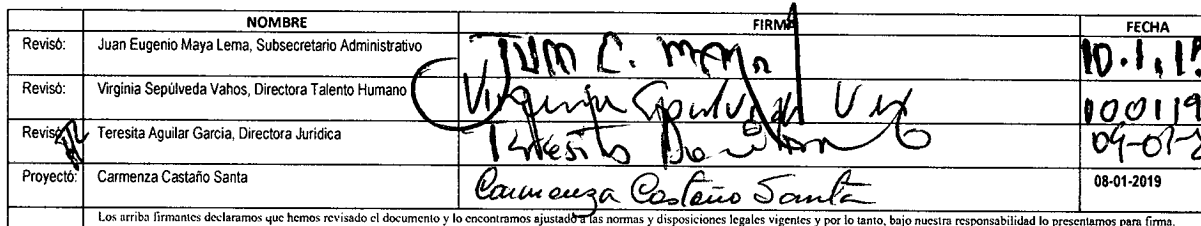 NOMBRE FIRMA FECHA
Revisó: Juan Eugenio Maya Lema, Subsecretario Administrativo 10.1.1
Revisó: Virginia Sepúlveda Vahos, Directora Talento Humano Virginia Sepulveda V 100119
Revisó: Teresita Aguilar Garcia, Directora Jurídica Teresita 09-01-2
Proyectó: Carmenza Castaño Santa Carmenza Castaño Santa 08-01-2019
Los arriba firmantes declaramos que hemos revisado el documento y lo encontramos ajustado a las normas y disposiciones legales vigentes y por lo tanto, bajo nuestra responsabilidad lo presentamos para firma.